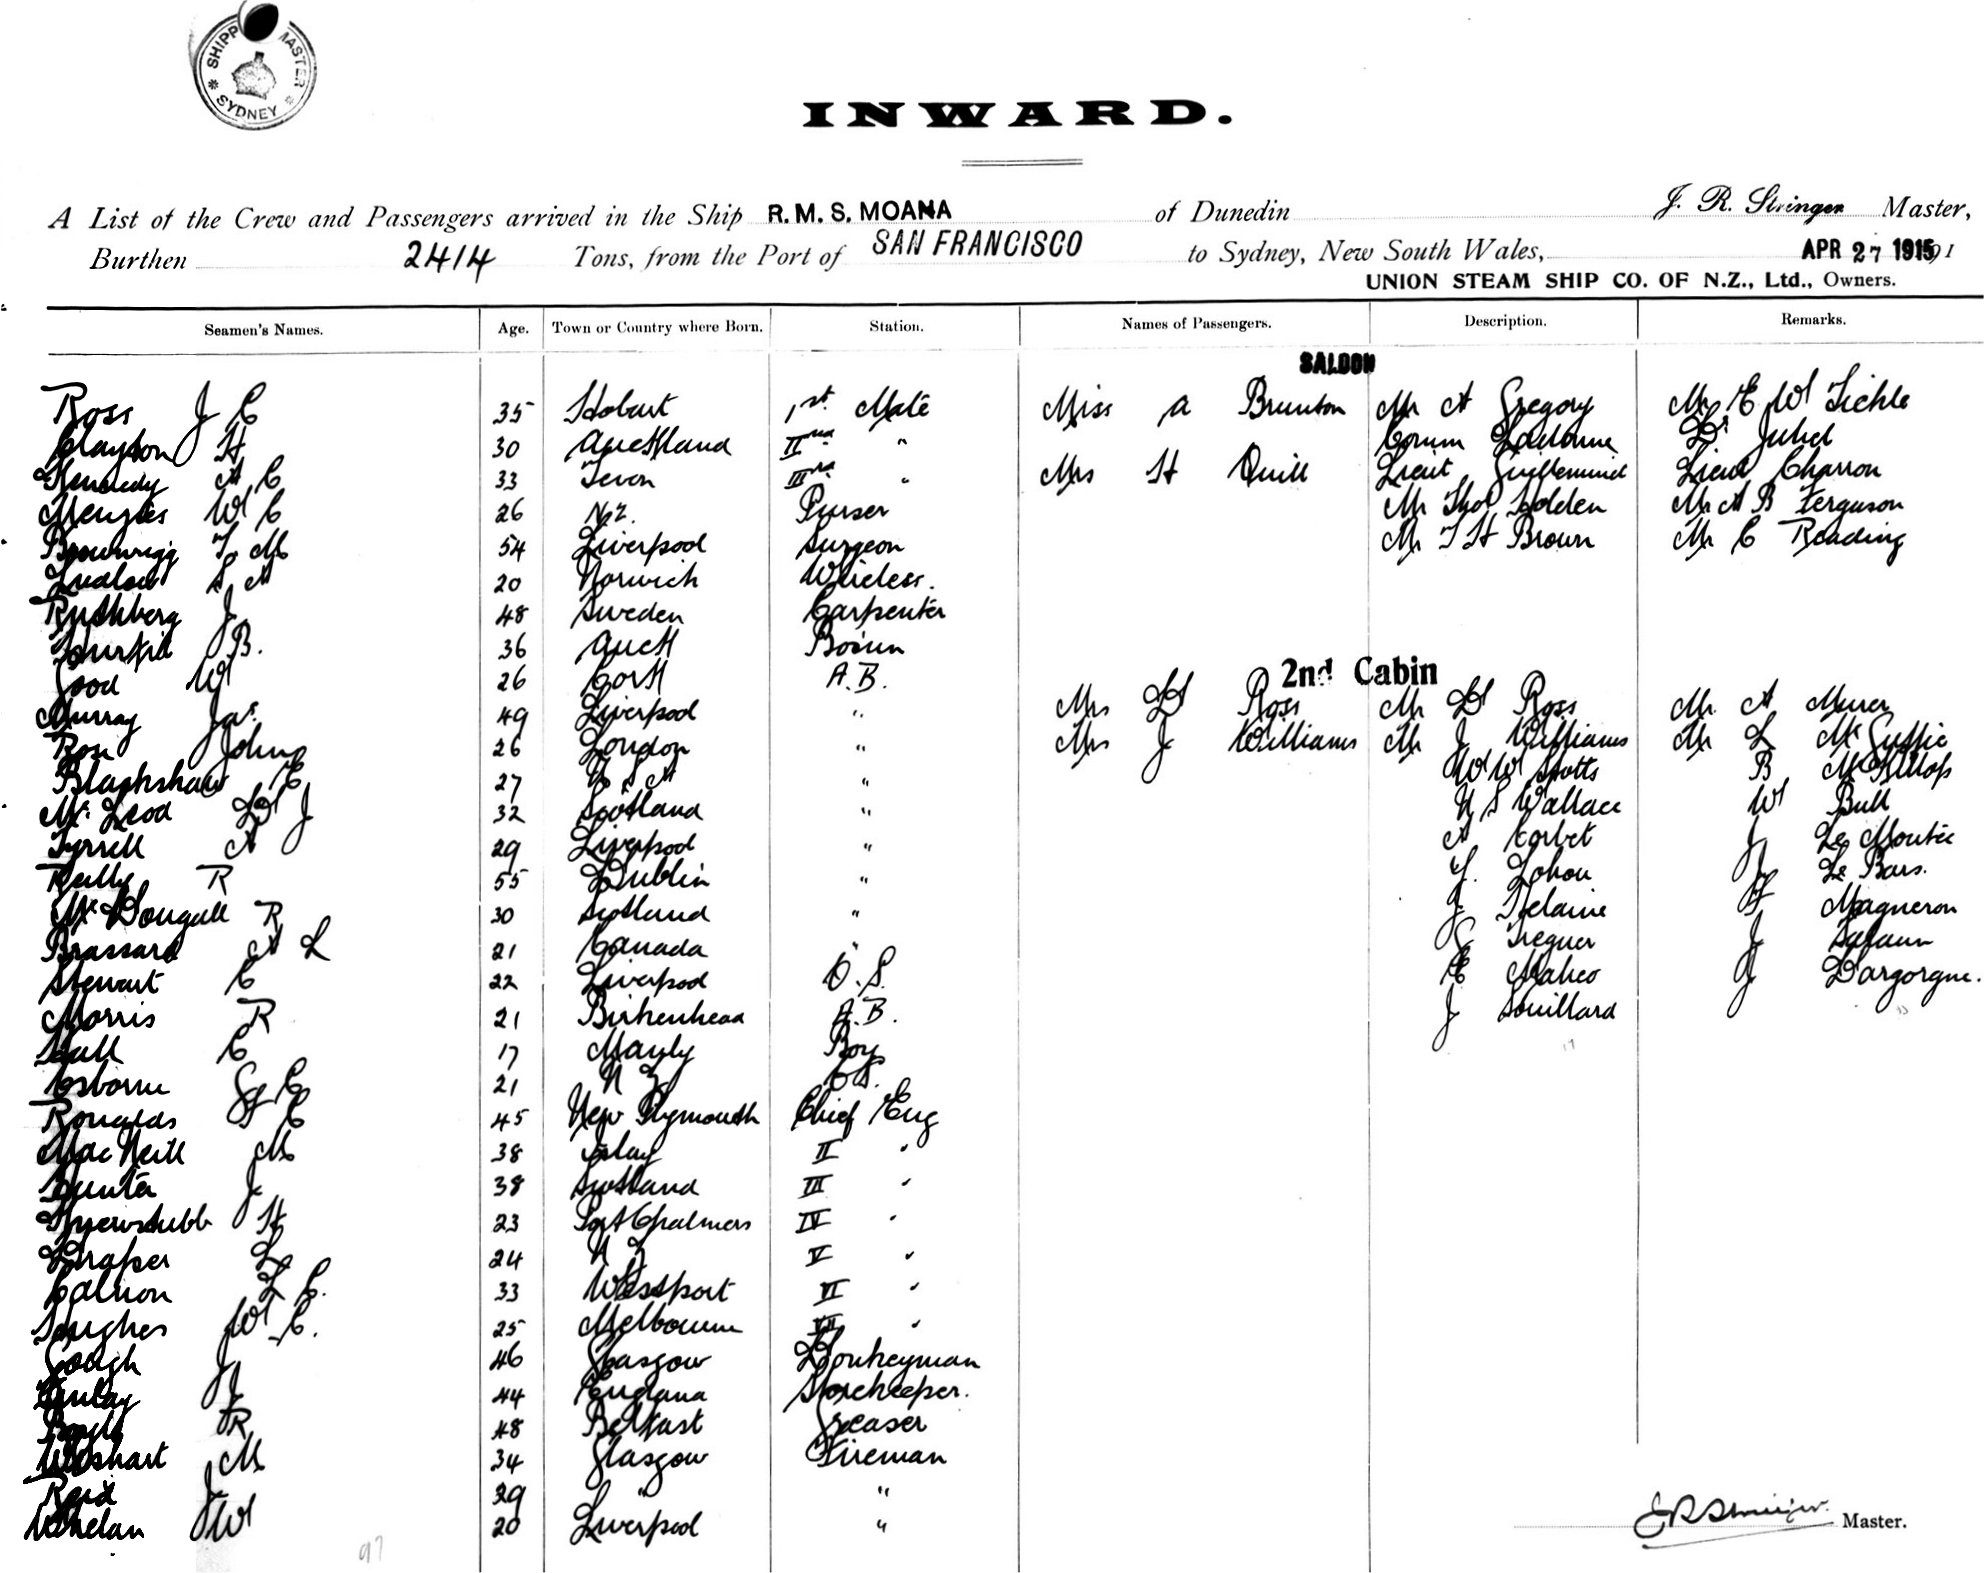 SHIPP MASTER
* SYDNEY *
INWARD.
A List of the Crew and Passengers arrived in the Ship R.M.S. MOANA of Dunedin J. R. Stringer Master,
Burthen 2414 Tons, from the Port of SAN FRANCISCO to Sydney, New South Wales, APR 27 1915 191
UNION STEAM SHIP CO. OF N.Z., Ltd., Owners.
Seamen's Names. Age. Town or Country where Born. Station. Names of Passengers. Description. Remarks.
SALOON
Ross J C 35 Hobart 1st. Mate Miss A Brunton Mr A Gregory Mr E W
Clayton H 30 Auckland IInd " Lt Juhel
Kennedy A C 33 Devon IIIrd " Mrs H Quill Lieut Guillemind Lieut Charron
Menzies W C 26 N.Z. Purser Mr Thos Holden Mr A B Ferguson
Brownrigg T. M 54 Liverpool Surgeon Mr T H Brown Mr C Reading
Ludlow S. A 20 Norwich Wireless.
Ruthberg J 48 Sweden Carpenter
B. 36 Auck Bosun
Good W 26 Cork A.B.
2nd Cabin
Murray Jas. 49 Liverpool " Mrs D Ross Mr D Ross Mr. A
Ross John 26 London " Mrs J Williams Mr J Williams Mr L McGuffie
Blackshaw E 27 U S A " W W Stotts B McKillop
Mc. Leod D J 32 Scotland " N S Wallace W Bull
Tyrrell A 29 Liverpool " A Corbet J Le Moutée
Reilly R 55 Dublin " Y. Lohou J Le Bars.
Mc Dougall R 30 Scotland " J Helaine F Magneron
Brassard A L 21 Canada " G Treguer J Salaun
Stewart C 22 Liverpool O.S. E Maheo J Dargorgne.
Morris R 21 Birkenhead A.B. J Souillard
Hall C 17 Boy
Osborne G C 21 N Z O.S.
Ronalds F C 45 New Plymouth Chief Eng
Mac Neill M 38 Islay II "
Hunter J 38 Scotland III "
Shrewstubb H 23 Port Chalmers IV "
Draper L 24 N Z V "
Calnon L C. 33 Westport VI "
Hughes W C. 25 Melbourne VII "
Gough J 46 Glasgow Donkeyman
Finlay J 44 England Storekeeper.
Boyle R 48 Belfast Greaser
Wishart M 34 Glasgow Fireman
Reid J 29 " "
Whelan W 20 Liverpool "
97
J R Stringer. Master.